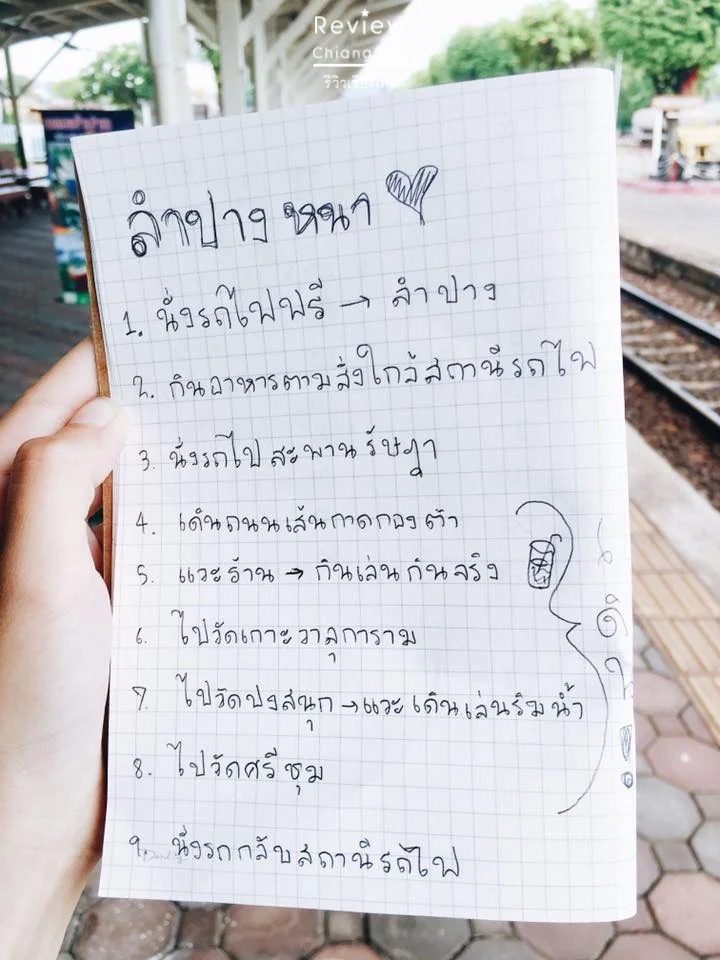 Review
Chiang
รีวิวเชีย
ลำปาง หนา
1. นั่งรถไฟฟรี → ลำปาง
2. กินอาหารตามสั่งใกล้สถานีรถไฟ
3. นั่งรถไป สะพาน รัษฎา
4. เดินถนนเส้นกาดกองต้า
5. แวะร้าน → กินเล่น กินจริง
6. ไปวัดเกาะวาลุการาม
7. ไปวัดปงสนุก → แวะ เดินเล่นริมน้ำ
8. ไปวัดศรีชุม
9. นั่งรถกลับสถานีรถไฟ
เดิน!